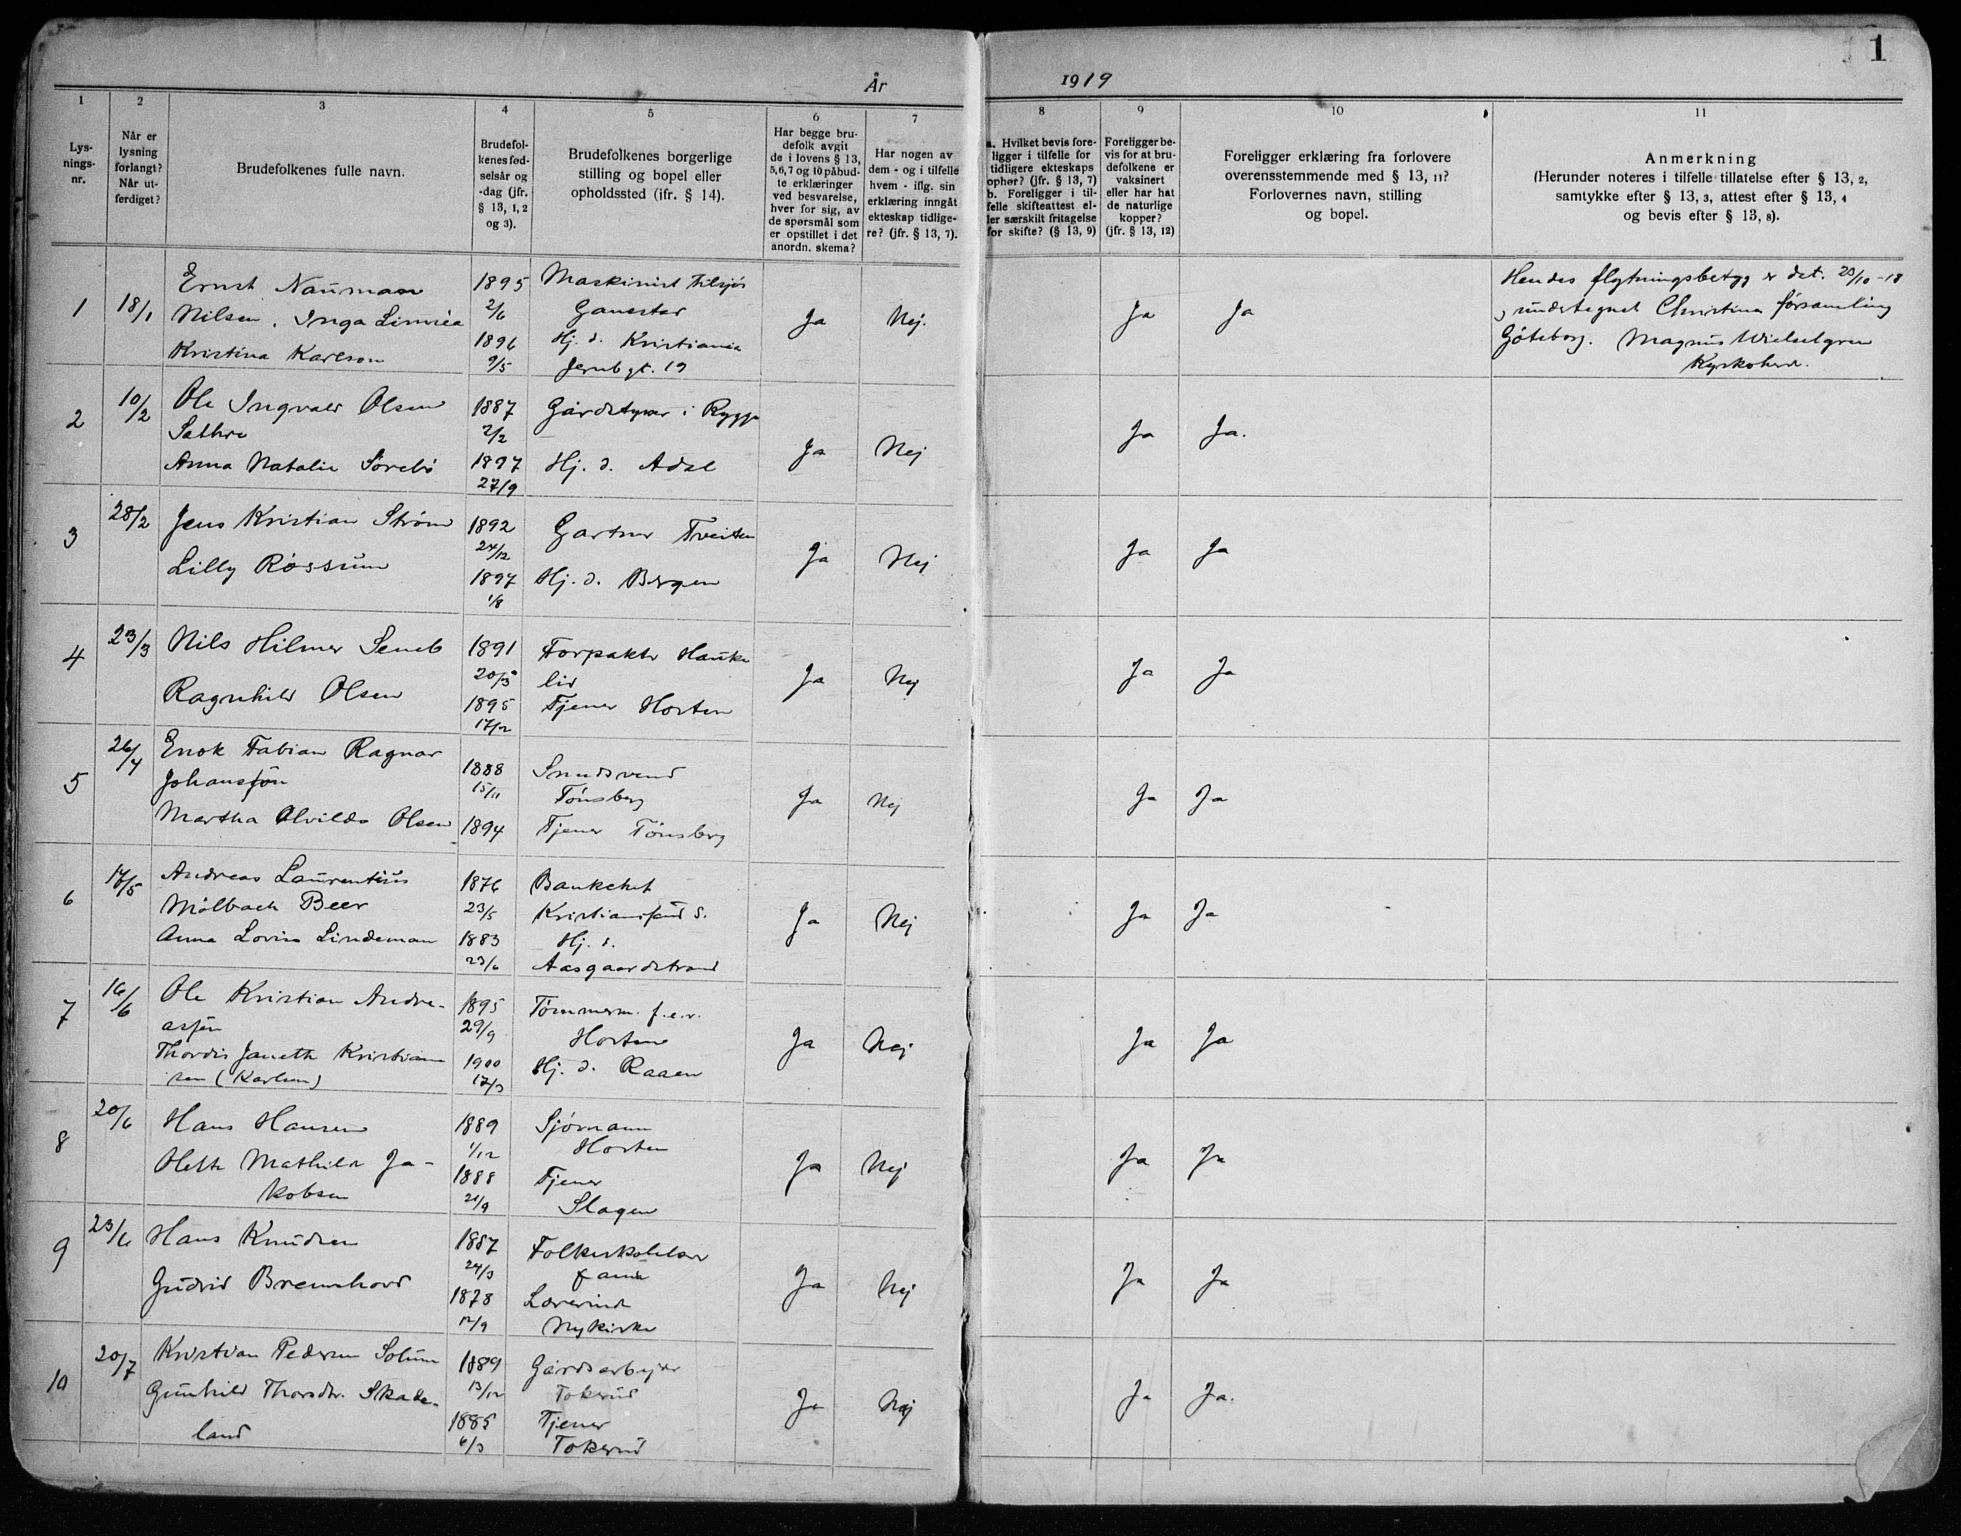 1
År 1919
1 2 3 4 5 6 7 8 9 10 11
Lys-
nings-
nr.
Når er
lysning
forlangt?
Når ut-
ferdiget?
Brudefolkenes fulle navn.
Brudefol-
kenes fød-
selsår og
-dag (jfr.
§ 13, 1, 2
og 3).
Brudefolkenes borgerlige
stilling og bopel eller
opholdssted (ifr. § 14).
Har begge bru-
defolk avgit
de i lovens § 13,
5, 6, 7 og 10 påbud-
te erklæringer
ved besvarelse,
hver for sig, av
de spørsmål som
er opstillet i det
anordn. skema?
Har nogen av
dem - og i tilfelle
hvem - iflg. sin
erklæring inngåt
ekteskap tidlige-
re? (jfr. § 13, 7).
a. Hvilket bevis fore-
ligger i tilfelle for
tidligere ekteskaps
ophør? (jfr. § 13, 7)
b. Foreligger i til-
felle skifteattest el-
ler særskilt fritagelse
for skifte? (§ 13, 9)
Foreligger be-
vis for at bru-
defolkene er
vaksinert
eller har hat
de naturlige
kopper?
(jfr. § 13, 12)
Foreligger erklæring fra forlovere
overensstemmende med § 13, 11?
Forlovernes navn, stilling
og bopel.
Anmerkning
(Herunder noteres i tilfelle tillatelse efter § 13, 2,
samtykke efter § 13, 3, attest efter § 13, 4
og bevis efter § 13, 8).
1 18/1
Ernst Nauman
Nilsen. Inga Linnéa
Kristina Karlson
1895
2/6
1896
9/5
Maskinist
Hj. d. Kristiania
Jernb gt. 19
Ja Nej. Ja Ja
Hendes flytningsbetyg er dat. 23/10-18
undertegnet Christina församling
Göteborg. Magnus Wieselgren
Kyrkoherde.
2 10/2
Ole Ingvald Olsen
Sæthre
Anna Natalie Sörebö
1887
2/2
1897
27/9
i Rygge
Hj. d. Adal
Ja Nej Ja Ja.
3 28/2
Jens Kristian Strøm
Lilly Røssum
1892
24/12
1897
1/8
Gartner Tveiten
Hj. d. Bergen
Ja Nej Ja Ja
4 23/3
Nils Hilmer
Ragnhild Olsen
1891
20/5
1895
17/12
Forpakter Hauke
lid
Tjener Horten
Ja Nej Ja Ja
5 26/4
Enok Fabian Ragnar
Johansson
Martha Alvilde Olsen
1888
15/11
1894
Smedsvend
Tönsberg
Tjener Tönsberg
Ja Nej Ja Ja
6 17/5
Andreas Laurentius
Mölbach Beer
Anna Lovise Lindeman
1876
23/5
1883
23/6
Kristiansand S.
Hj. d.
Aasgaardstrand
Ja Nej Ja Ja
7 16/6
Ole Kristian Andre-
assen
Thordis Janeth Kristian
sen (Karlsen)
1895
29/9
1900
17/3
Tömmerm. f.e.v.
Horten
Hj. d. Raaen
Ja Nej Ja Ja
8 20/6
Hans Hansen
Mathilde Ja-
kobsen
1889
1/12
1888
21/9
Sjömann
Horten
Tjener
Slagen
Ja Nej Ja Ja
9 23/6
Hans Knudsen
Gudrid Brennhovd
1887
24/3
1878
12/9
Lærerinde
Nykirke
Ja Nej Ja Ja
10 20/7
Kristian Pedersen Solum
Gunhild Thorsdtr. Skade-
land
1889
13/12
1885
6/3
Gårdsarbejder
Tokerud
Tjener
Tokerud
Ja Nej Ja Ja.